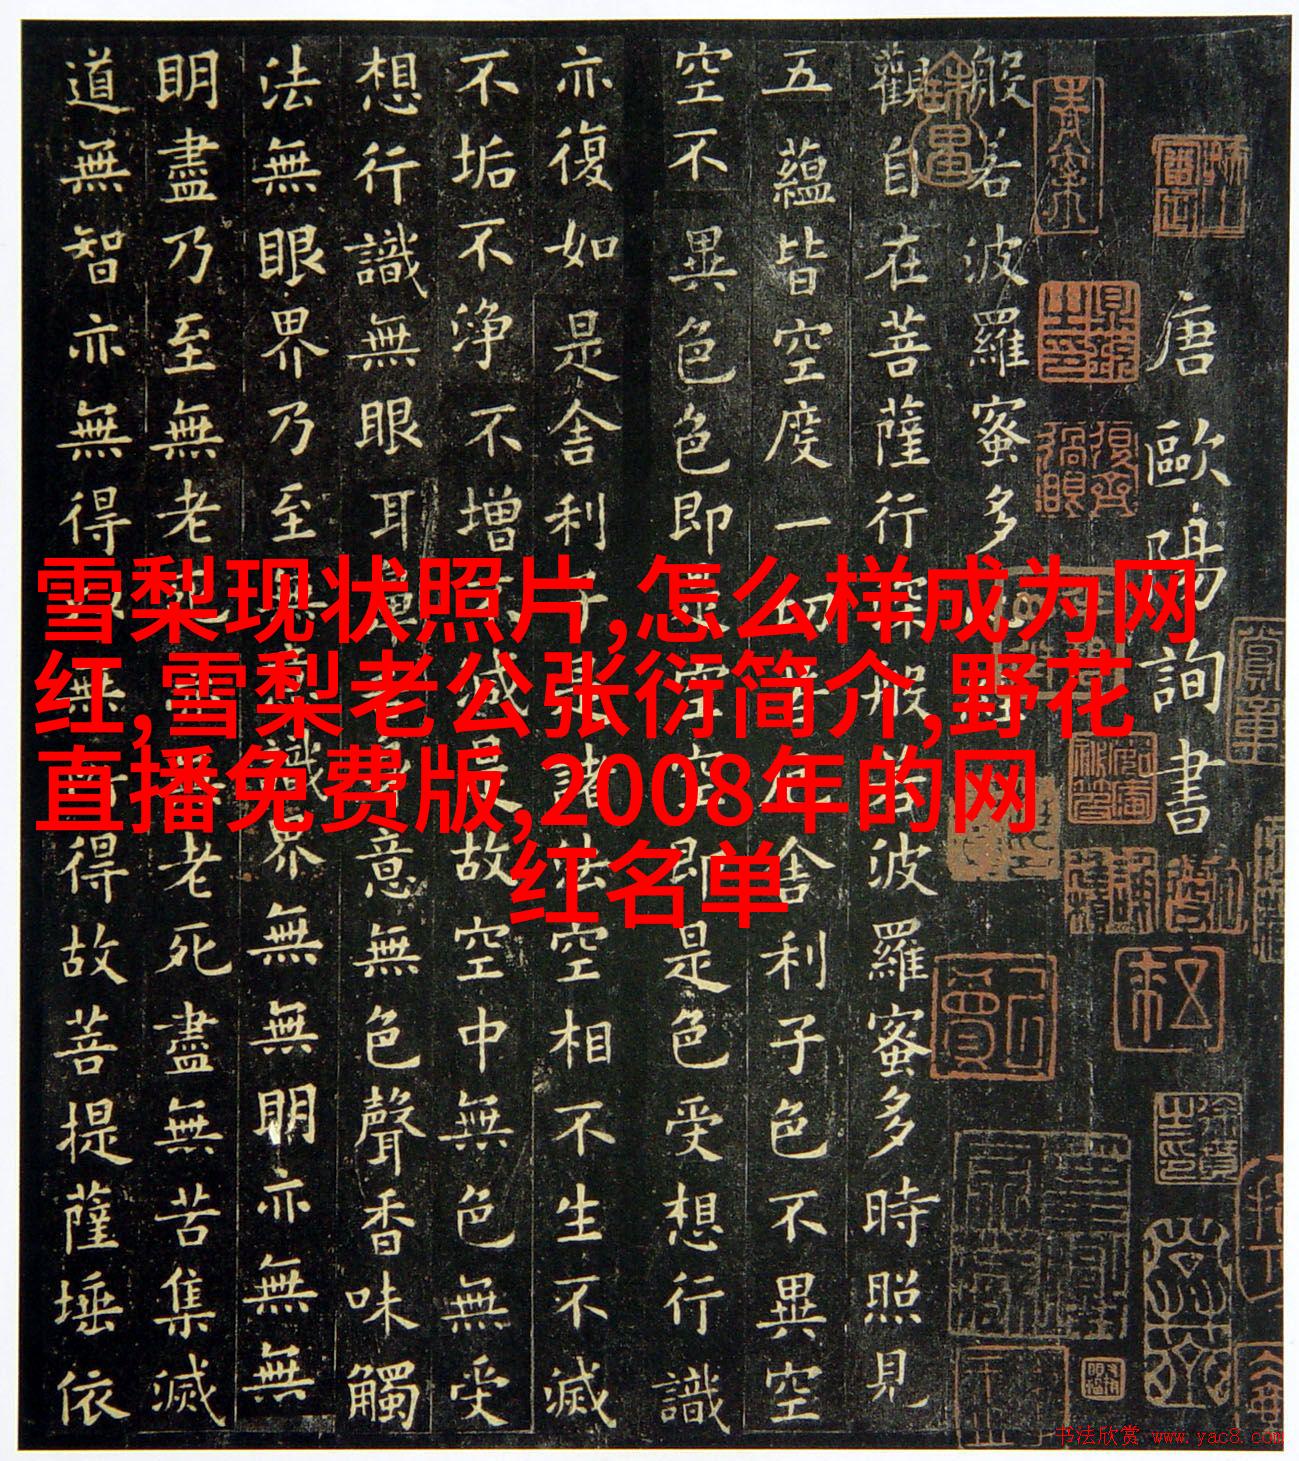 雪梨现状照片,怎么样成为网
红,雪梨老公张衍简介,野花
直播免费版,2008年的网
红名单
唐歐陽詢書
般若波羅蜜多
觀自在菩薩行深般若波羅蜜多時照見
五蘊皆空度一切厄舍利子色不異空
空不異色色即是空空即是色受想行識
亦復如是舍利子是諸法空相不生不滅
不垢不淨不增不減是故空中無色無受
想行識無眼耳鼻舌身意無色聲香味觸
法無眼界乃至無意識界無無明亦無無
明盡乃至無老死亦無老死盡無苦集滅
道無智亦無得以無所得故菩提薩埵依
书法欣赏 www.yac8.com